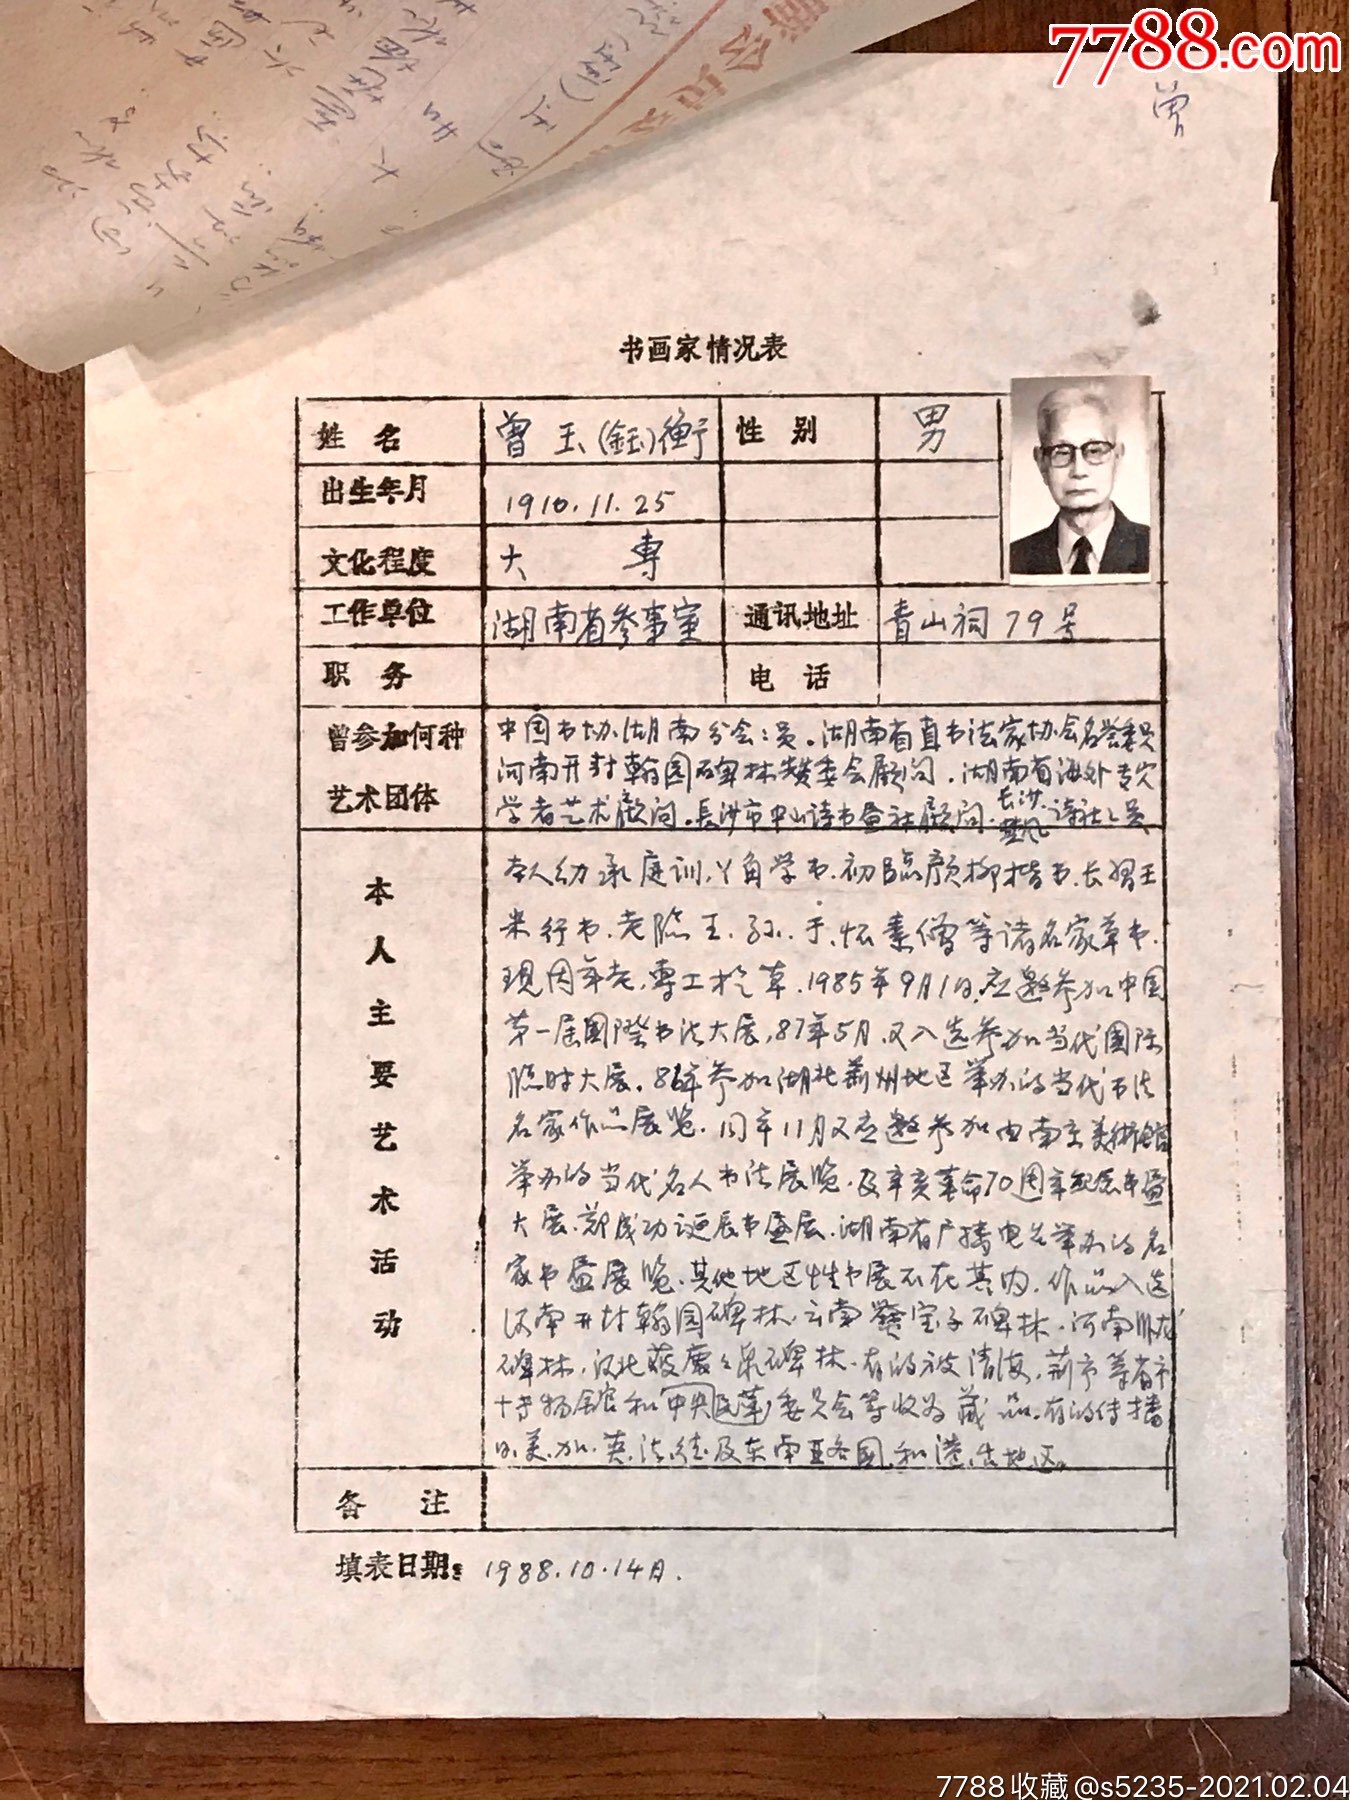 7788.com
曾
书画家情况表
姓 名 曾玉(鈺)衡 性 别 男
出生年月 1910.11.25
文化程度 大 専
工作单位 湖南省参事室 通讯地址 青山祠79号
职 务 电 话
曾参加何种艺术团体
中国书协湖南分会会员。湖南省直书法家协会名誉委员
河南开封翰园碑林赞委会顾问。湖南省海外专家
学者艺术顾问。長沙市中山诗书画社顾问.長沙楚风诗社社员
本人主要艺术活动
本人幼承庭训,丫角学书.初临颜柳楷书.长習王
米行书.老临王.孙.于.怀素僧等诸名家草书.
现因年老,専工於草.1985年9月1日,应邀参加中国
第一届國際书法大展,87年5月,又入选参加当代國际
临时大展.86年参加湖北荊州地区举办的当代书法
名家作品展览.同年11月又应邀参加由南京美術館
举办的当代名人书法展览.及辛亥革命70週年纪念书画
大展.郑成功诞辰书画展.湖南省广播电台举办的名
家书画展览.其他地区性书展不在其内.作品入选
河南开封翰园碑林.云南爨宝子碑林.河南卧龙
碑林.汉北 碑林.有的被清海.荊市等省市
博物館和中央民革委员会等收为藏品.有的传播
日.美.加.英.法.德及东南亚各國.和港.台地区。
备 注
填表日期: 1988.10.14日.
7788收藏@s5235-2021.02.04